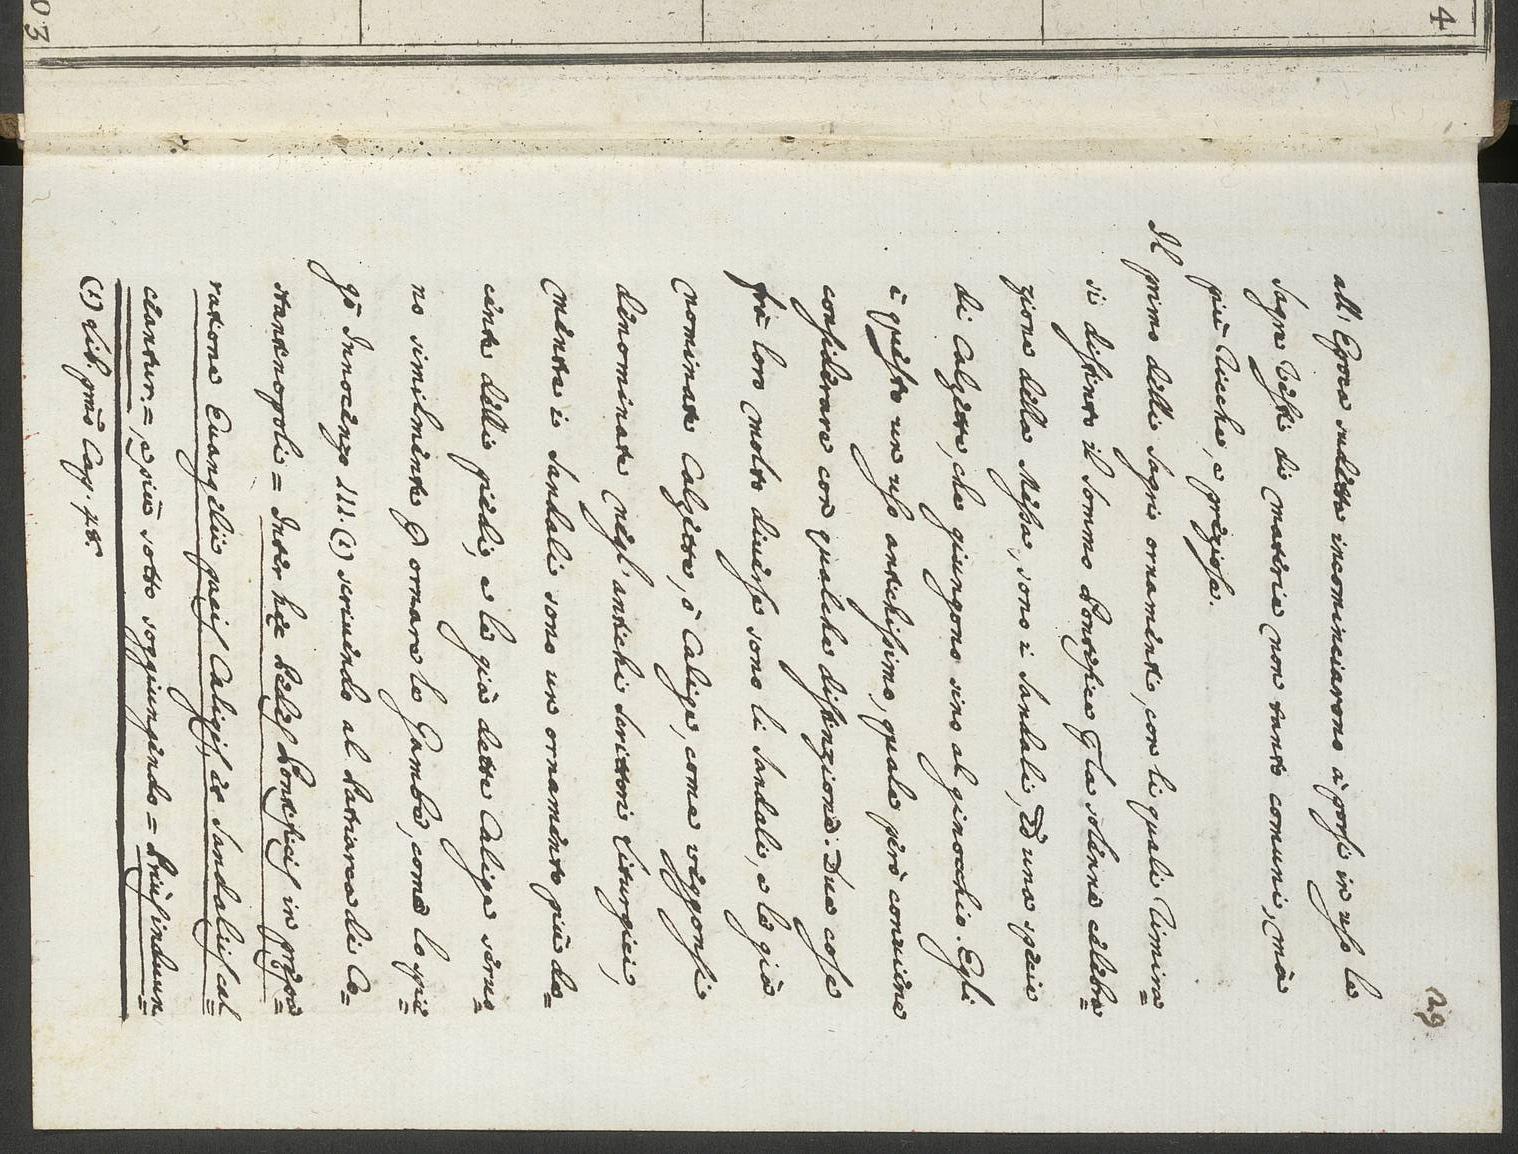 29
all' Epoca sudetta incominciarono à porsi in uso le
Sagre Vesti di materie non tanto comuni, mà
più Ricche, e preziose.
Il primo delli Sagri ornamenti, con li quali Rimira=
si distinto il Sommo Pontefice p la solenne celebra=
zione della Messa, sono i Sandali, ed una specie
di Calzette, che giungono sino al ginocchio. Egli
è questo un uso antichissimo, quale però conviene
considerare con qualche distinzione. Due cose
frà loro molto diverse sono li Sandali, e le già
nominate Calzette, ò Calige, come veggonsi
denominate negl' antichi Scrittori Liturgici,
mentre i Sandali sono un ornamento più de=
cente delli piedi, e le già dette Calige servo=
no similmente p ornare le Gambe, come lo spie=
gò Innocenzo III. (1) scrivendo al Patriarca di Co=
stantinopoli = Inter hec Pedes Pontificis in prepa=
ratione Euangelii pacis Caligis, et Sandaliis cal=
ciantur. =, e più sotto soggiungendo = Prius induun=
(1) Lib. pmo Cap. 48.
03
4